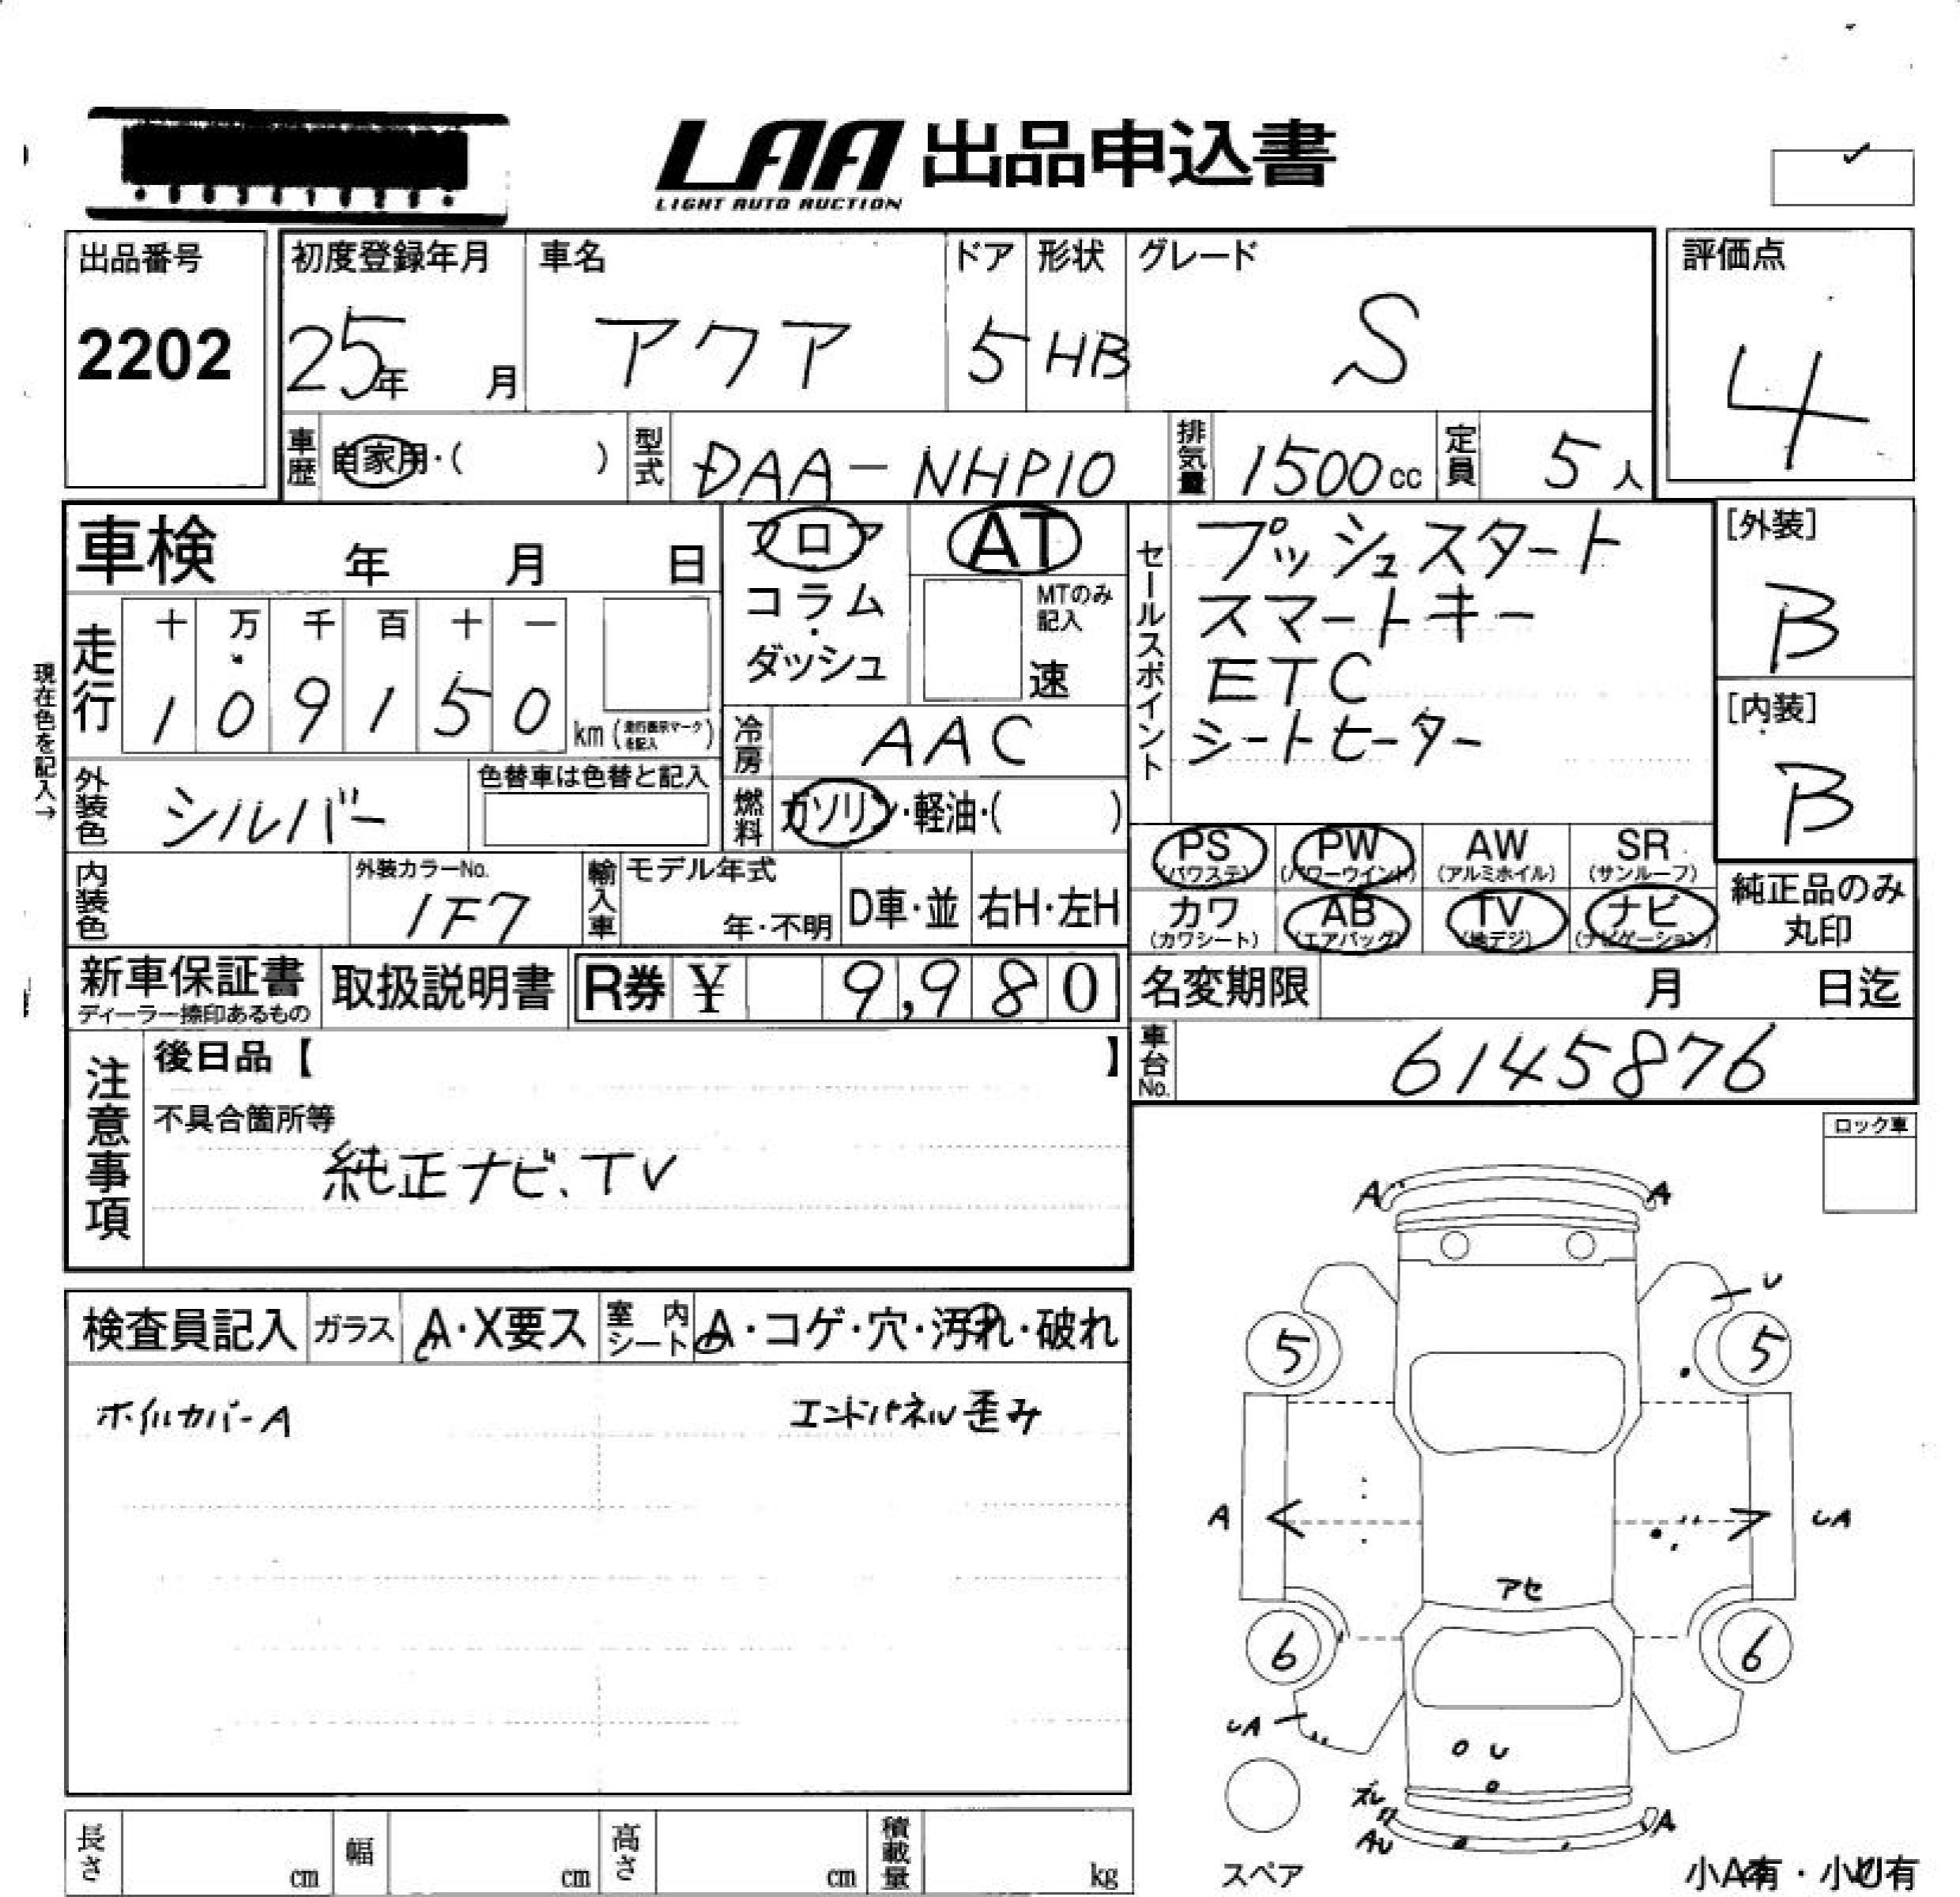 LAA 出品申込書
LIGHT AUTO AUCTION
出品番号 初度登録年月 車名 ドア 形状 グレード 評価点
2202 25年 月 アクア 5 HB S 4
車歴 自家用・( ) 型式 DAA-NHP10 排気量 1500cc 定員 5人
車検 年 月 日 フロア AT セールスポイント プッシュスタート [外装]
コラム・ダッシュ MTのみ記入 速 スマートキー B
走行 十 万 千 百 十 一 ETC [内装]
1 0 9 1 5 0 km ( を記入 ) 冷房 AAC シートヒーター B
現在色を記入→
外装色 シルバー 色替車は色替と記入 燃料 ガソリン・軽油・( )
PS (パワステ) PW (パワーウインド) AW (アルミホイル) SR (サンルーフ)
内装色 外装カラーNo. 1F7 輸入車 モデル年式 年・不明 D車・並 右H・左H
カワ (カワシート) AB (エアバッグ) TV (地デジ) ナビ (ナビゲーション) 純正品のみ丸印
新車保証書 ディーラー捺印あるもの 取扱説明書 R券 ¥ 9,980 名変期限 月 日迄
注意事項 後日品【 】 車台No. 6145876
不具合箇所等
純正ナビ、TV
ロック車
A A
検査員記入 ガラス A・X要ス 室内シート A・コゲ・穴・汚れ・破れ
U
5 5
ホイルカバーA エンドパネル歪み
A UA
アセ
6 6
UA
U
ズレ
AU A
スペア
小A有・小U有
長さ cm 幅 cm 高さ cm 積載量 kg